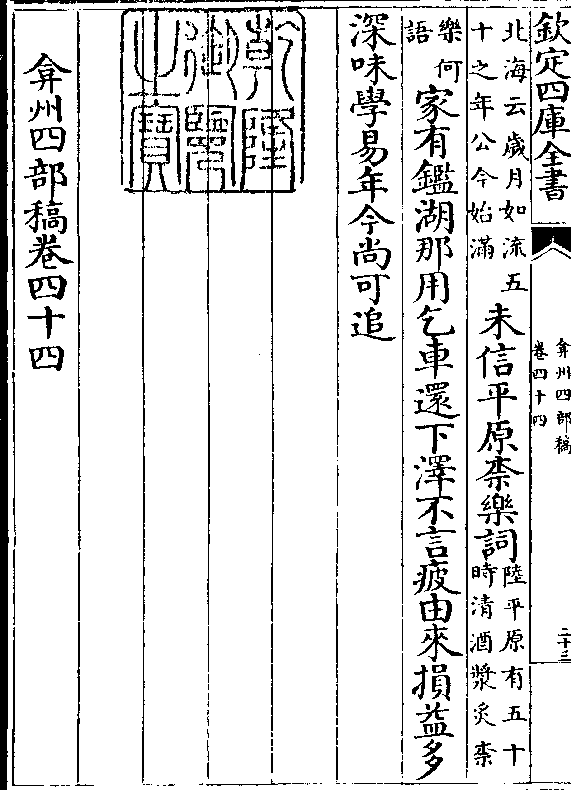 欽定四庫全書
弇州四部稿
卷四十四
二十三
北海云歲月如流五
十之年公今始滿
未信平原柰樂詞
陸平原有五十
時清酒漿炙柰
樂何
語
家有鑑湖那用乞車還下澤不言疲由來損益多
深味學易年今尚可追
乾隆御覽之寶
弇州四部稿卷四十四